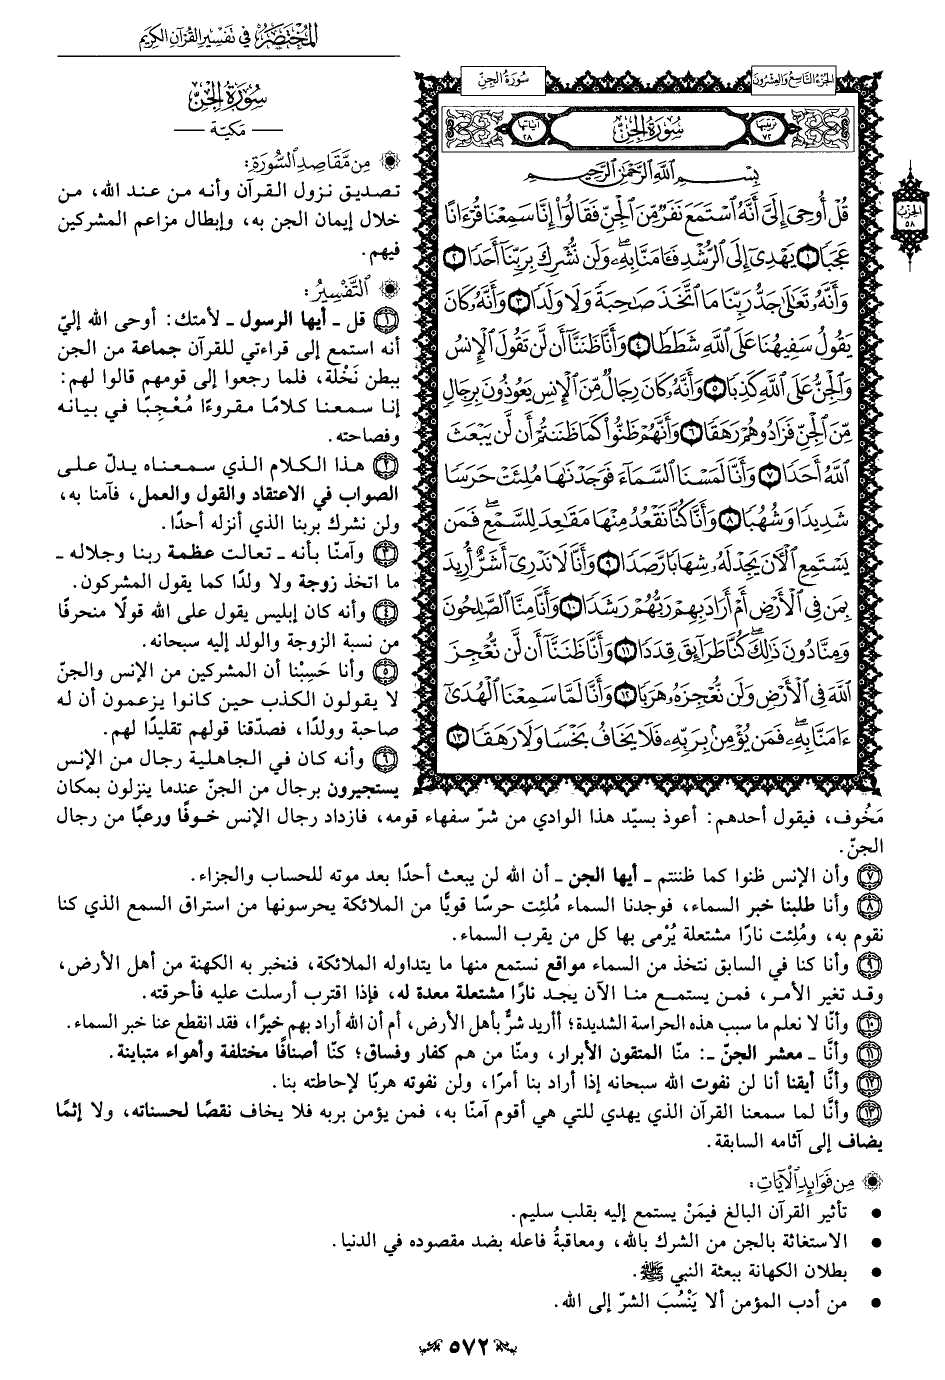 المختصر في تفسير القرآن الكريم
الجزء التاسع والعشرون
سورة الجن
ترتيبها ٧٢
سورة الجن
آياتها ٢٨
بِسْمِ ٱللَّهِ ٱلرَّحْمَٰنِ ٱلرَّحِيمِ
قُلْ أُوحِىَ إِلَىَّ أَنَّهُ ٱسْتَمَعَ نَفَرٌ مِّنَ ٱلْجِنِّ فَقَالُوٓا۟ إِنَّا سَمِعْنَا قُرْءَانًا
عَجَبًا ١ يَهْدِىٓ إِلَى ٱلرُّشْدِ فَـَٔامَنَّا بِهِۦ ۖ وَلَن نُّشْرِكَ بِرَبِّنَآ أَحَدًا ٢
وَأَنَّهُۥ تَعَٰلَىٰ جَدُّ رَبِّنَا مَا ٱتَّخَذَ صَٰحِبَةً وَلَا وَلَدًا ٣ وَأَنَّهُۥ كَانَ
يَقُولُ سَفِيهُنَا عَلَى ٱللَّهِ شَطَطًا ٤ وَأَنَّا ظَنَنَّآ أَن لَّن تَقُولَ ٱلْإِنسُ
وَٱلْجِنُّ عَلَى ٱللَّهِ كَذِبًا ٥ وَأَنَّهُۥ كَانَ رِجَالٌ مِّنَ ٱلْإِنسِ يَعُوذُونَ بِرِجَالٍ
مِّنَ ٱلْجِنِّ فَزَادُوهُمْ رَهَقًا ٦ وَأَنَّهُمْ ظَنُّوا۟ كَمَا ظَنَنتُمْ أَن لَّن يَبْعَثَ
ٱللَّهُ أَحَدًا ٧ وَأَنَّا لَمَسْنَا ٱلسَّمَآءَ فَوَجَدْنَٰهَا مُلِئَتْ حَرَسًا
شَدِيدًا وَشُهُبًا ٨ وَأَنَّا كُنَّا نَقْعُدُ مِنْهَا مَقَٰعِدَ لِلسَّمْعِ ۖ فَمَن
يَسْتَمِعِ ٱلْـَٔانَ يَجِدْ لَهُۥ شِهَابًا رَّصَدًا ٩ وَأَنَّا لَا نَدْرِىٓ أَشَرٌّ أُرِيدَ
بِمَن فِى ٱلْأَرْضِ أَمْ أَرَادَ بِهِمْ رَبُّهُمْ رَشَدًا ١٠ وَأَنَّا مِنَّا ٱلصَّٰلِحُونَ
وَمِنَّا دُونَ ذَٰلِكَ ۖ كُنَّا طَرَآئِقَ قِدَدًا ١١ وَأَنَّا ظَنَنَّآ أَن لَّن نُّعْجِزَ
ٱللَّهَ فِى ٱلْأَرْضِ وَلَن نُّعْجِزَهُۥ هَرَبًا ١٢ وَأَنَّا لَمَّا سَمِعْنَا ٱلْهُدَىٰٓ
ءَامَنَّا بِهِۦ ۖ فَمَن يُؤْمِنۢ بِرَبِّهِۦ فَلَا يَخَافُ بَخْسًا وَلَا رَهَقًا ١٣
الحزب ٥٨
سورة الجن
— مكية —
من مقاصد السورة:
تصديق نزول القرآن وأنه من عند الله، من
خلال إيمان الجن به، وإبطال مزاعم المشركين
فيهم.
التفسير:
١ قل ـ أيها الرسول ـ لأمتك: أوحى الله إليّ
أنه استمع إلى قراءتي للقرآن جماعة من الجن
ببطن نَخْلة، فلما رجعوا إلى قومهم قالوا لهم:
إنا سمعنا كلامًا مقروءًا مُعْجِبًا في بيانه
وفصاحته.
٢ هذا الكلام الذي سمعناه يدلّ على
الصواب في الاعتقاد والقول والعمل، فآمنا به،
ولن نشرك بربنا الذي أنزله أحدًا.
٣ وآمنّا بأنه ـ تعالت عظمة ربنا وجلاله ـ
ما اتخذ زوجة ولا ولدًا كما يقول المشركون.
٤ وأنه كان إبليس يقول على الله قولًا منحرفًا
من نسبة الزوجة والولد إليه سبحانه.
٥ وأنا حَسِبْنا أن المشركين من الإنس والجنّ
لا يقولون الكذب حين كانوا يزعمون أن له
صاحبة وولدًا، فصدّقنا قولهم تقليدًا لهم.
٦ وأنه كان في الجاهلية رجال من الإنس
يستجيرون برجال من الجنّ عندما ينزلون بمكان
مَخُوف، فيقول أحدهم: أعوذ بسيّد هذا الوادي من شرّ سفهاء قومه، فازداد رجال الإنس خوفًا ورعبًا من رجال
الجنّ.
٧ وأن الإنس ظنوا كما ظننتم ـ أيها الجن ـ أن الله لن يبعث أحدًا بعد موته للحساب والجزاء.
٨ وأنا طلبنا خبر السماء، فوجدنا السماء مُلئِت حرسًا قويًّا من الملائكة يحرسونها من استراق السمع الذي كنا
نقوم به، ومُلِئت نارًا مشتعلة يُرْمى بها كل من يقرب السماء.
٩ وأنا كنا في السابق نتخذ من السماء مواقع نستمع منها ما يتداوله الملائكة، فنخبر به الكهنة من أهل الأرض،
وقد تغير الأمر، فمن يستمع منا الآن يجد نارًا مشتعلة معدة له، فإذا اقترب أرسلت عليه فأحرقته.
١٠ وأنّا لا نعلم ما سبب هذه الحراسة الشديدة؛ أأريد شرٌّ بأهل الأرض، أم أن الله أراد بهم خيرًا، فقد انقطع عنا خبر السماء.
١١ وأنَّا ـ معشر الجنّ ـ: منّا المتقون الأبرار، ومنّا من هم كفار وفساق؛ كنّا أصنافًا مختلفة وأهواء متباينة.
١٢ وأنَّا أيقنا أنا لن نفوت الله سبحانه إذا أراد بنا أمرًا، ولن نفوته هربًا لإحاطته بنا.
١٣ وأنَّا لما سمعنا القرآن الذي يهدي للتي هي أقوم آمنّا به، فمن يؤمن بربه فلا يخاف نقصًا لحسناته، ولا إثمًا
يضاف إلى آثامه السابقة.
من فوائد الآيات:
• تأثير القرآن البالغ فيمَنْ يستمع إليه بقلب سليم.
• الاستغاثة بالجن من الشرك بالله، ومعاقبةُ فاعله بضد مقصوده في الدنيا.
• بطلان الكهانة ببعثة النبي ﷺ.
• من أدب المؤمن ألا يَنْسُبَ الشرّ إلى الله.
٥٧٢